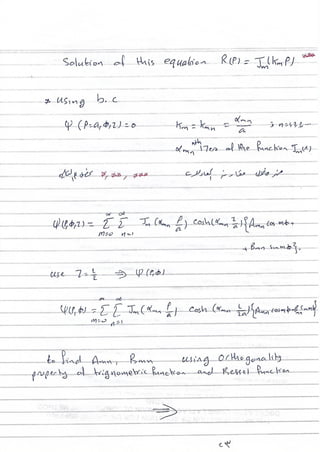 Solution of this equation R(ρ) = J_m(k_m ρ) ***
* using b.c
ψ(ρ=a,φ,z)=0 k_m = k_mn = α_mn/a ; n=1,2,3...
α_mn nth zero of the function J_m(x)
*, **, ***
ψ(ρ,φ,z) = Σ_{m=0}^{∞} Σ_{n=1}^{∞} J_m(α_mn ρ/a) cosh(α_mn z/a) {A_mn cos mφ +
+ B_mn sin mφ}.
use z = L/2 ⇒ ψ(ρ,φ)
ψ(ρ,φ) = Σ_{m=0}^{∞} Σ_{n=1}^{∞} J_m(α_mn ρ/a) cosh(α_mn L/2a) {A_mn cos mφ + B_mn sin mφ}
to find A_mn, B_mn using Orthogonality
property of trignometric function and Bessel function
⇒